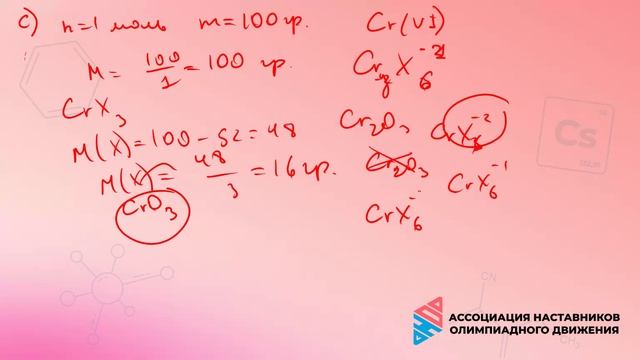 c) n=1 моль m=100гр.
M = 100/1 = 100 гр.
CrX₃
M(X)=100-52=48
M(X)= 48/3 =16гр.
CrO₃
Cr(VI)
Cr₂O₃
CrX₃⁻²
Cr₂O₃
CrX₆⁻¹
CrX₆⁻
Cs
CN
АССОЦИАЦИЯ НАСТАВНИКОВ
ОЛИМПИАДНОГО ДВИЖЕНИЯ